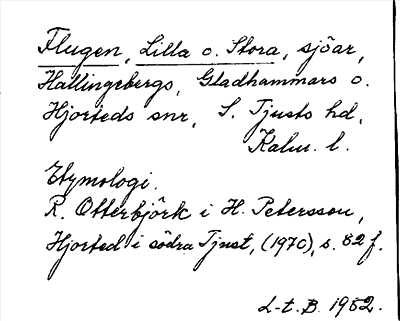 Flugen, Lilla o. Stora, sjöar,
Hallingebergs, Gladhammars o.
Hjorteds snr, S. Tjusts hd,
Kalm. l.
Etymologi.
R. Otterbjörk i H. Petersson,
Hjorted i södra Tjust, (1970), s. 82 f.
L-t. B. 1982.